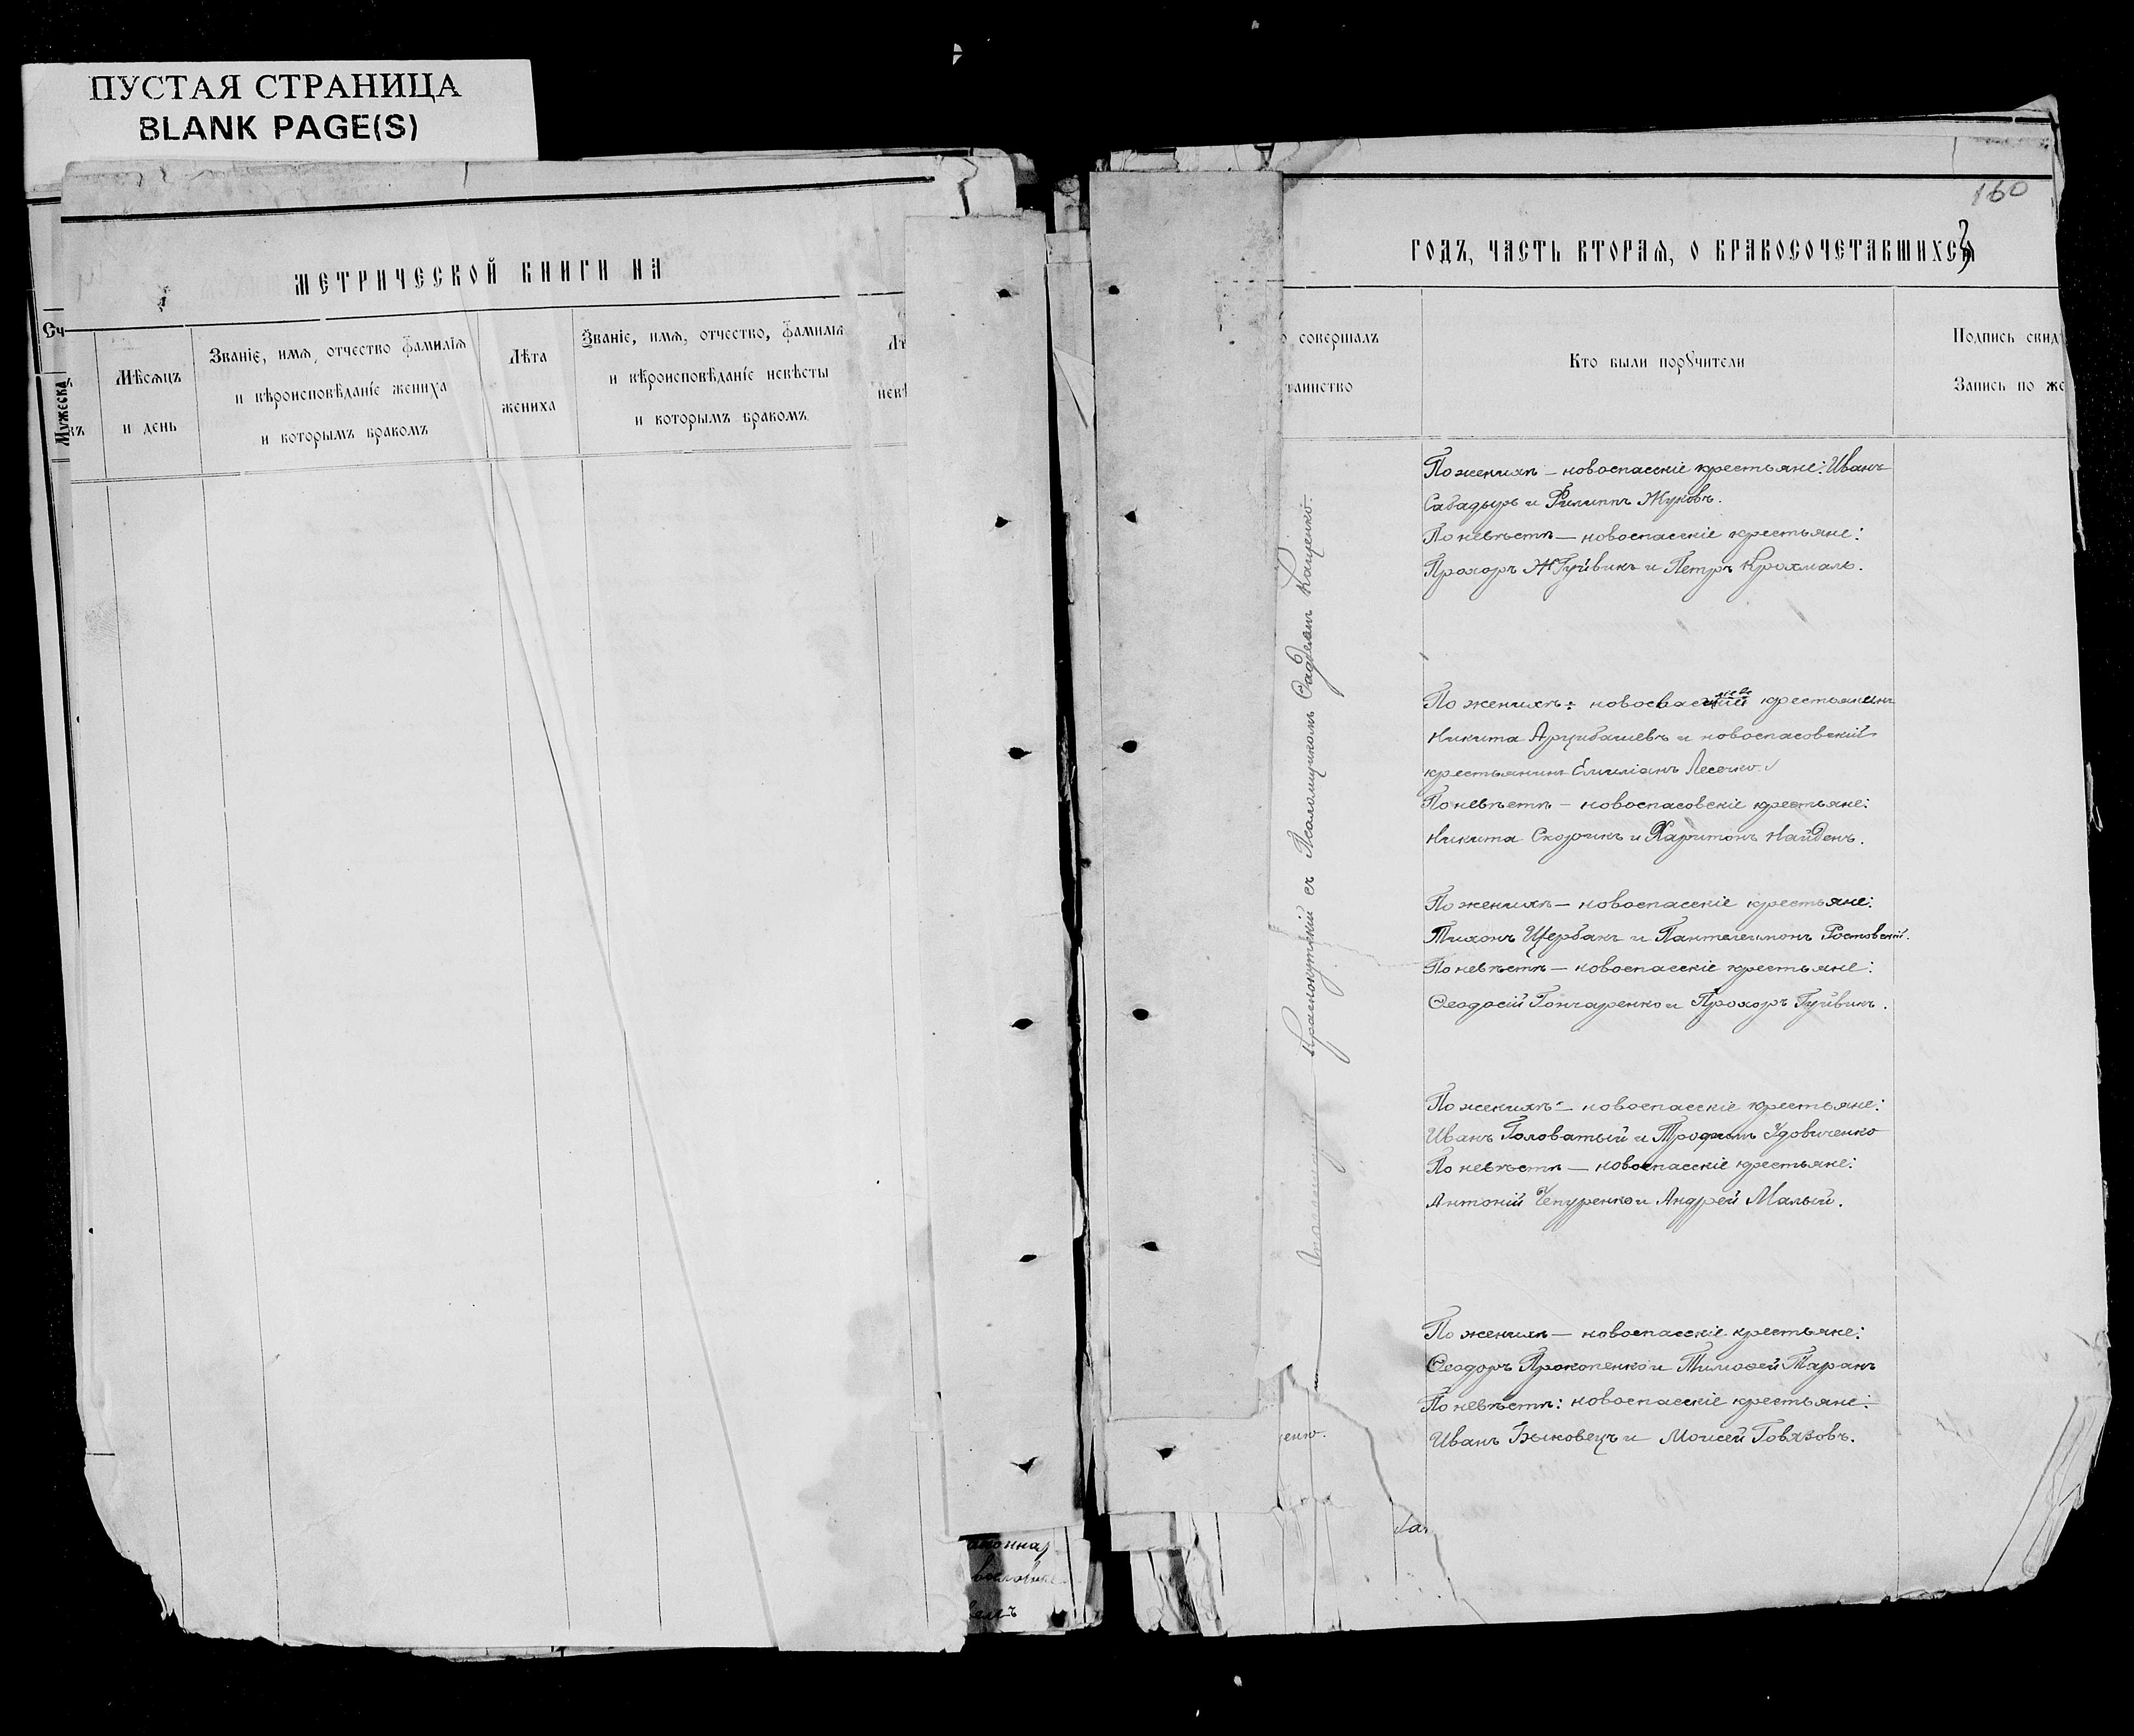 ПУСТАЯ СТРАНИЦА
BLANK PAGE(S)
МЕТРИЧЕСКОЙ КНИГИ НА
Сч
Мужеска
Мѣсяцъ
и день
Званіе, имя, отчество фамилія
и вѣроисповѣданіе жениха
и которымъ бракомъ
Лѣта
жениха
Званіе, имя, отчество, фамилія
и вѣроисповѣданіе невѣсты
и которымъ бракомъ
160
ГОДЪ, ЧАСТЬ ВТОРАЯ, О БРАКОСОЧЕТАВШИХСЯ
совершалъ
таинство
Кто были поручители
Подпись свид
Запись по же
Краснокутскій съ Псаломщикомъ Каценко.
По женихѣ – новоспасскіе крестьяне: Иванъ
Сабадырь и Филиппъ Жуковъ.
По невѣстѣ – новоспасскіе крестьяне:
Прохоръ Гуйвикъ и Петръ Крохмаль.
По женихѣ: крестьянинъ
Никита Арцибашевъ и новоспасовскій
крестьянинъ Емиліанъ Лесечко.
По невѣстѣ – новоспасовскіе крестьяне:
Никита Скорикъ и Харитонъ Найденъ.
По женихѣ – новоспасскіе крестьяне:
Тихонъ Щербакъ и Пантелеимонъ Ростовскій.
По невѣстѣ – новоспасскіе крестьяне:
Ѳеодосій Гончаренко и Прохоръ Гуйвикъ.
По женихѣ – новоспасскіе крестьяне:
Иванъ Головатый и Трофимъ Удовиченко
По невѣстѣ – новоспасскіе крестьяне:
Антоній Чепуренко и Андрей Малый.
По женихѣ – новоспасскіе крестьяне:
Ѳеодоръ Прокопенко и Тимоѳей Таранъ
По невѣстѣ: новоспасскіе крестьяне:
Иванъ Быковецъ и Моисей Говязовъ.